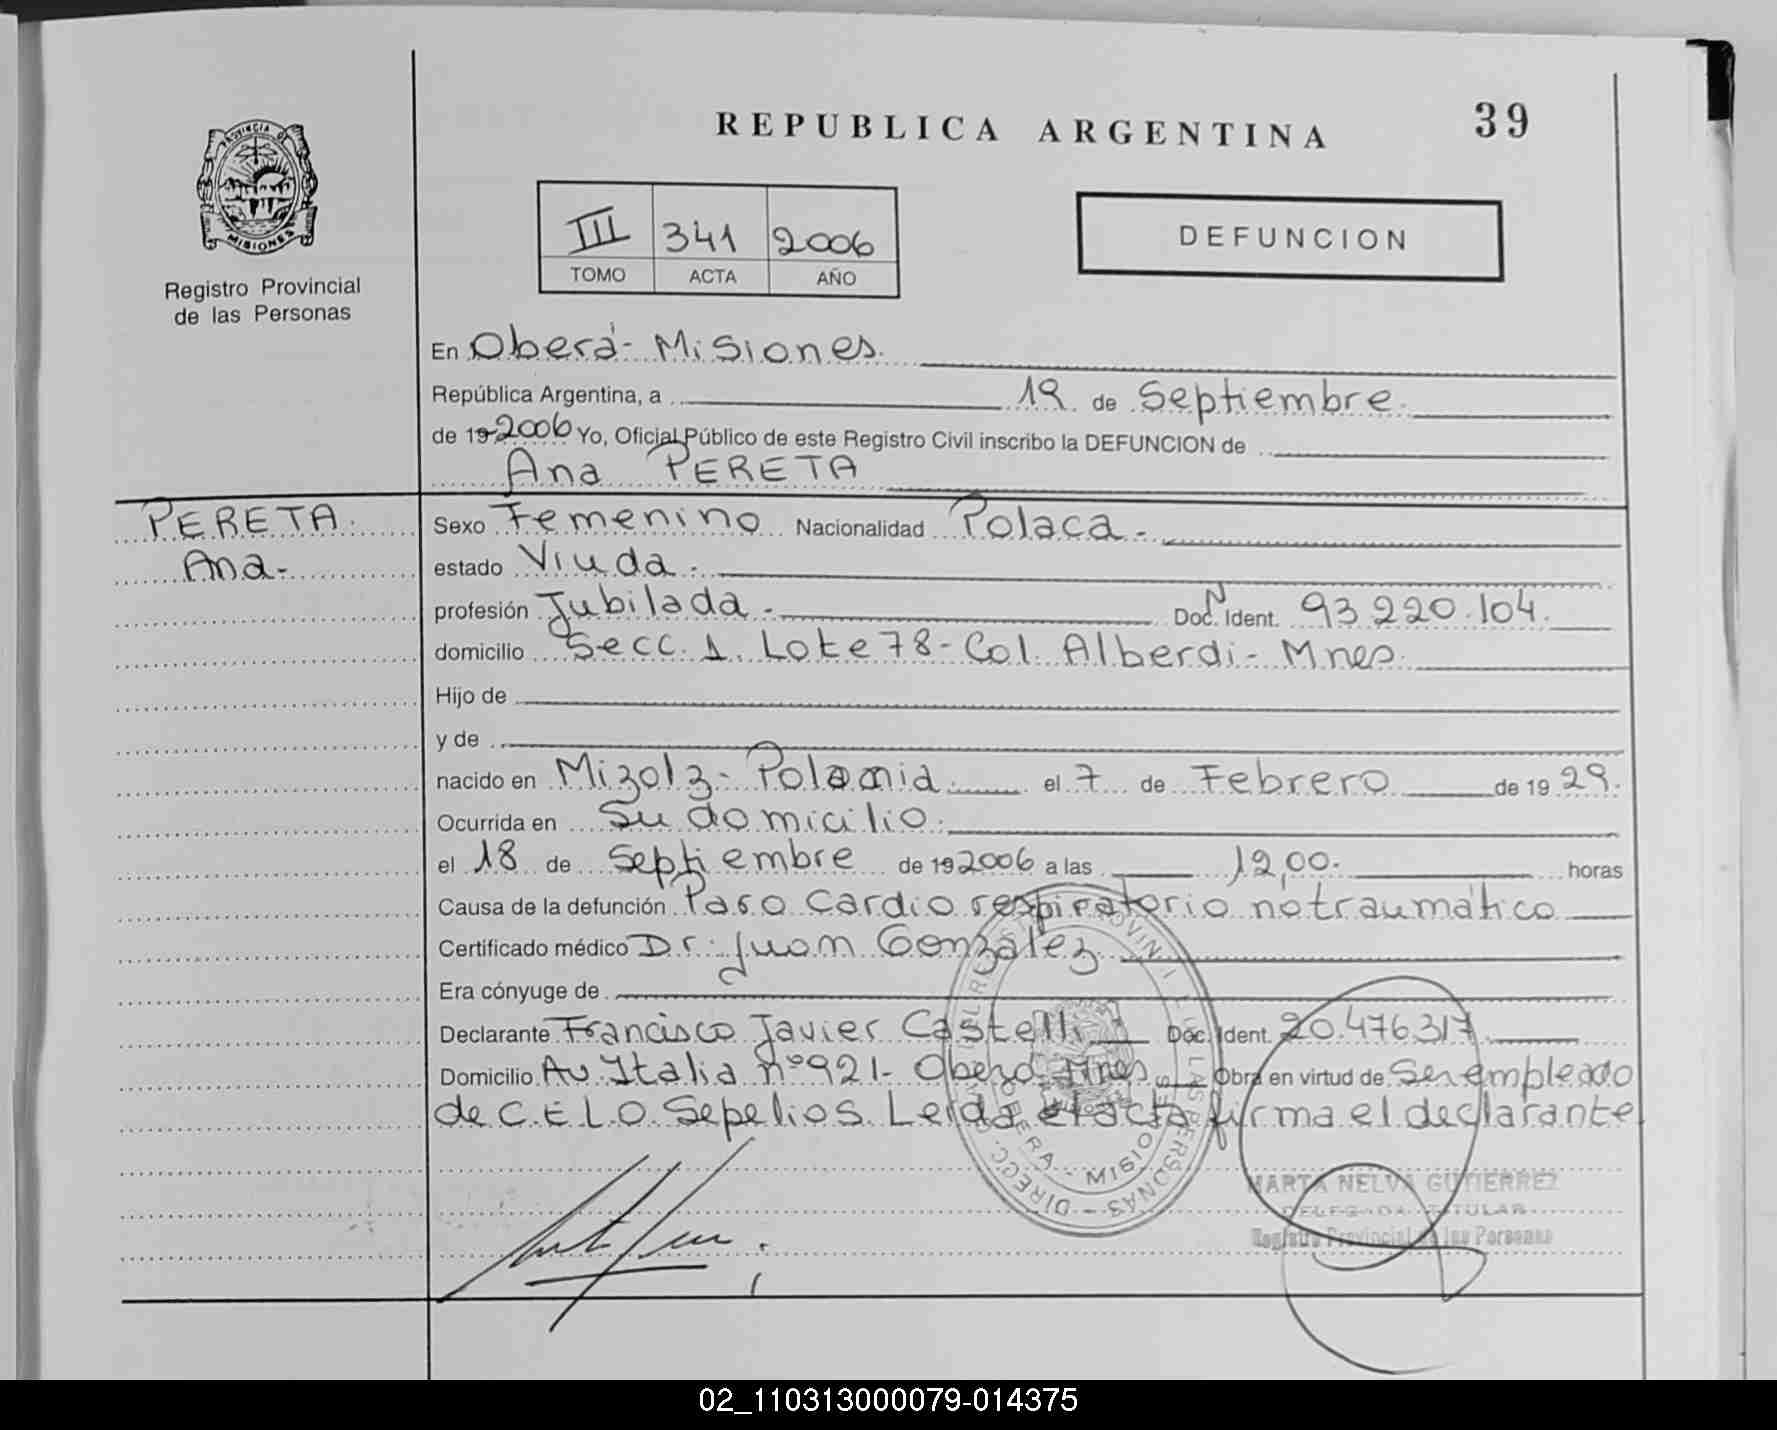 REPUBLICA ARGENTINA
39
PROVINCIA DE
MISIONES
Registro Provincial
de las Personas
III 341 2006
TOMO ACTA AÑO
DEFUNCION
En Oberá - Misiones.
República Argentina, a 19 de Septiembre.
de 19 2006 Yo, Oficial Público de este Registro Civil inscribo la DEFUNCION de
Ana PERETA
PERETA.
Ana-
Sexo Femenino Nacionalidad Polaca.-
estado Viuda.
profesión Jubilada. Doc. N Ident. 93.220.104.
domicilio Secc. 1. Lote 78 - Col. Alberdi - Mnes.
Hijo de
y de
nacido en Mizolz - Polonia. el 7 de Febrero de 19 29.
Ocurrida en Su domicilio.
el 18 de Septiembre de 19 2006 a las 12,00. horas
Causa de la defunción Paro Cardio respiratorio no traumático
Certificado médico Dr. Juan Gonzalez
Era cónyuge de
Declarante Francisco Javier Castelli Doc. Ident. 20.476.317
Domicilio Av. Italia nº 921- Oberá Mnes Obra en virtud de Ser empleado
de C.E.L.O. Sepelios. Leida el acta firma el declarante
MARTA NELVA GUTIERREZ
DELEGADA TITULAR
Registro Provincial de las Personas
02_110313000079-014375